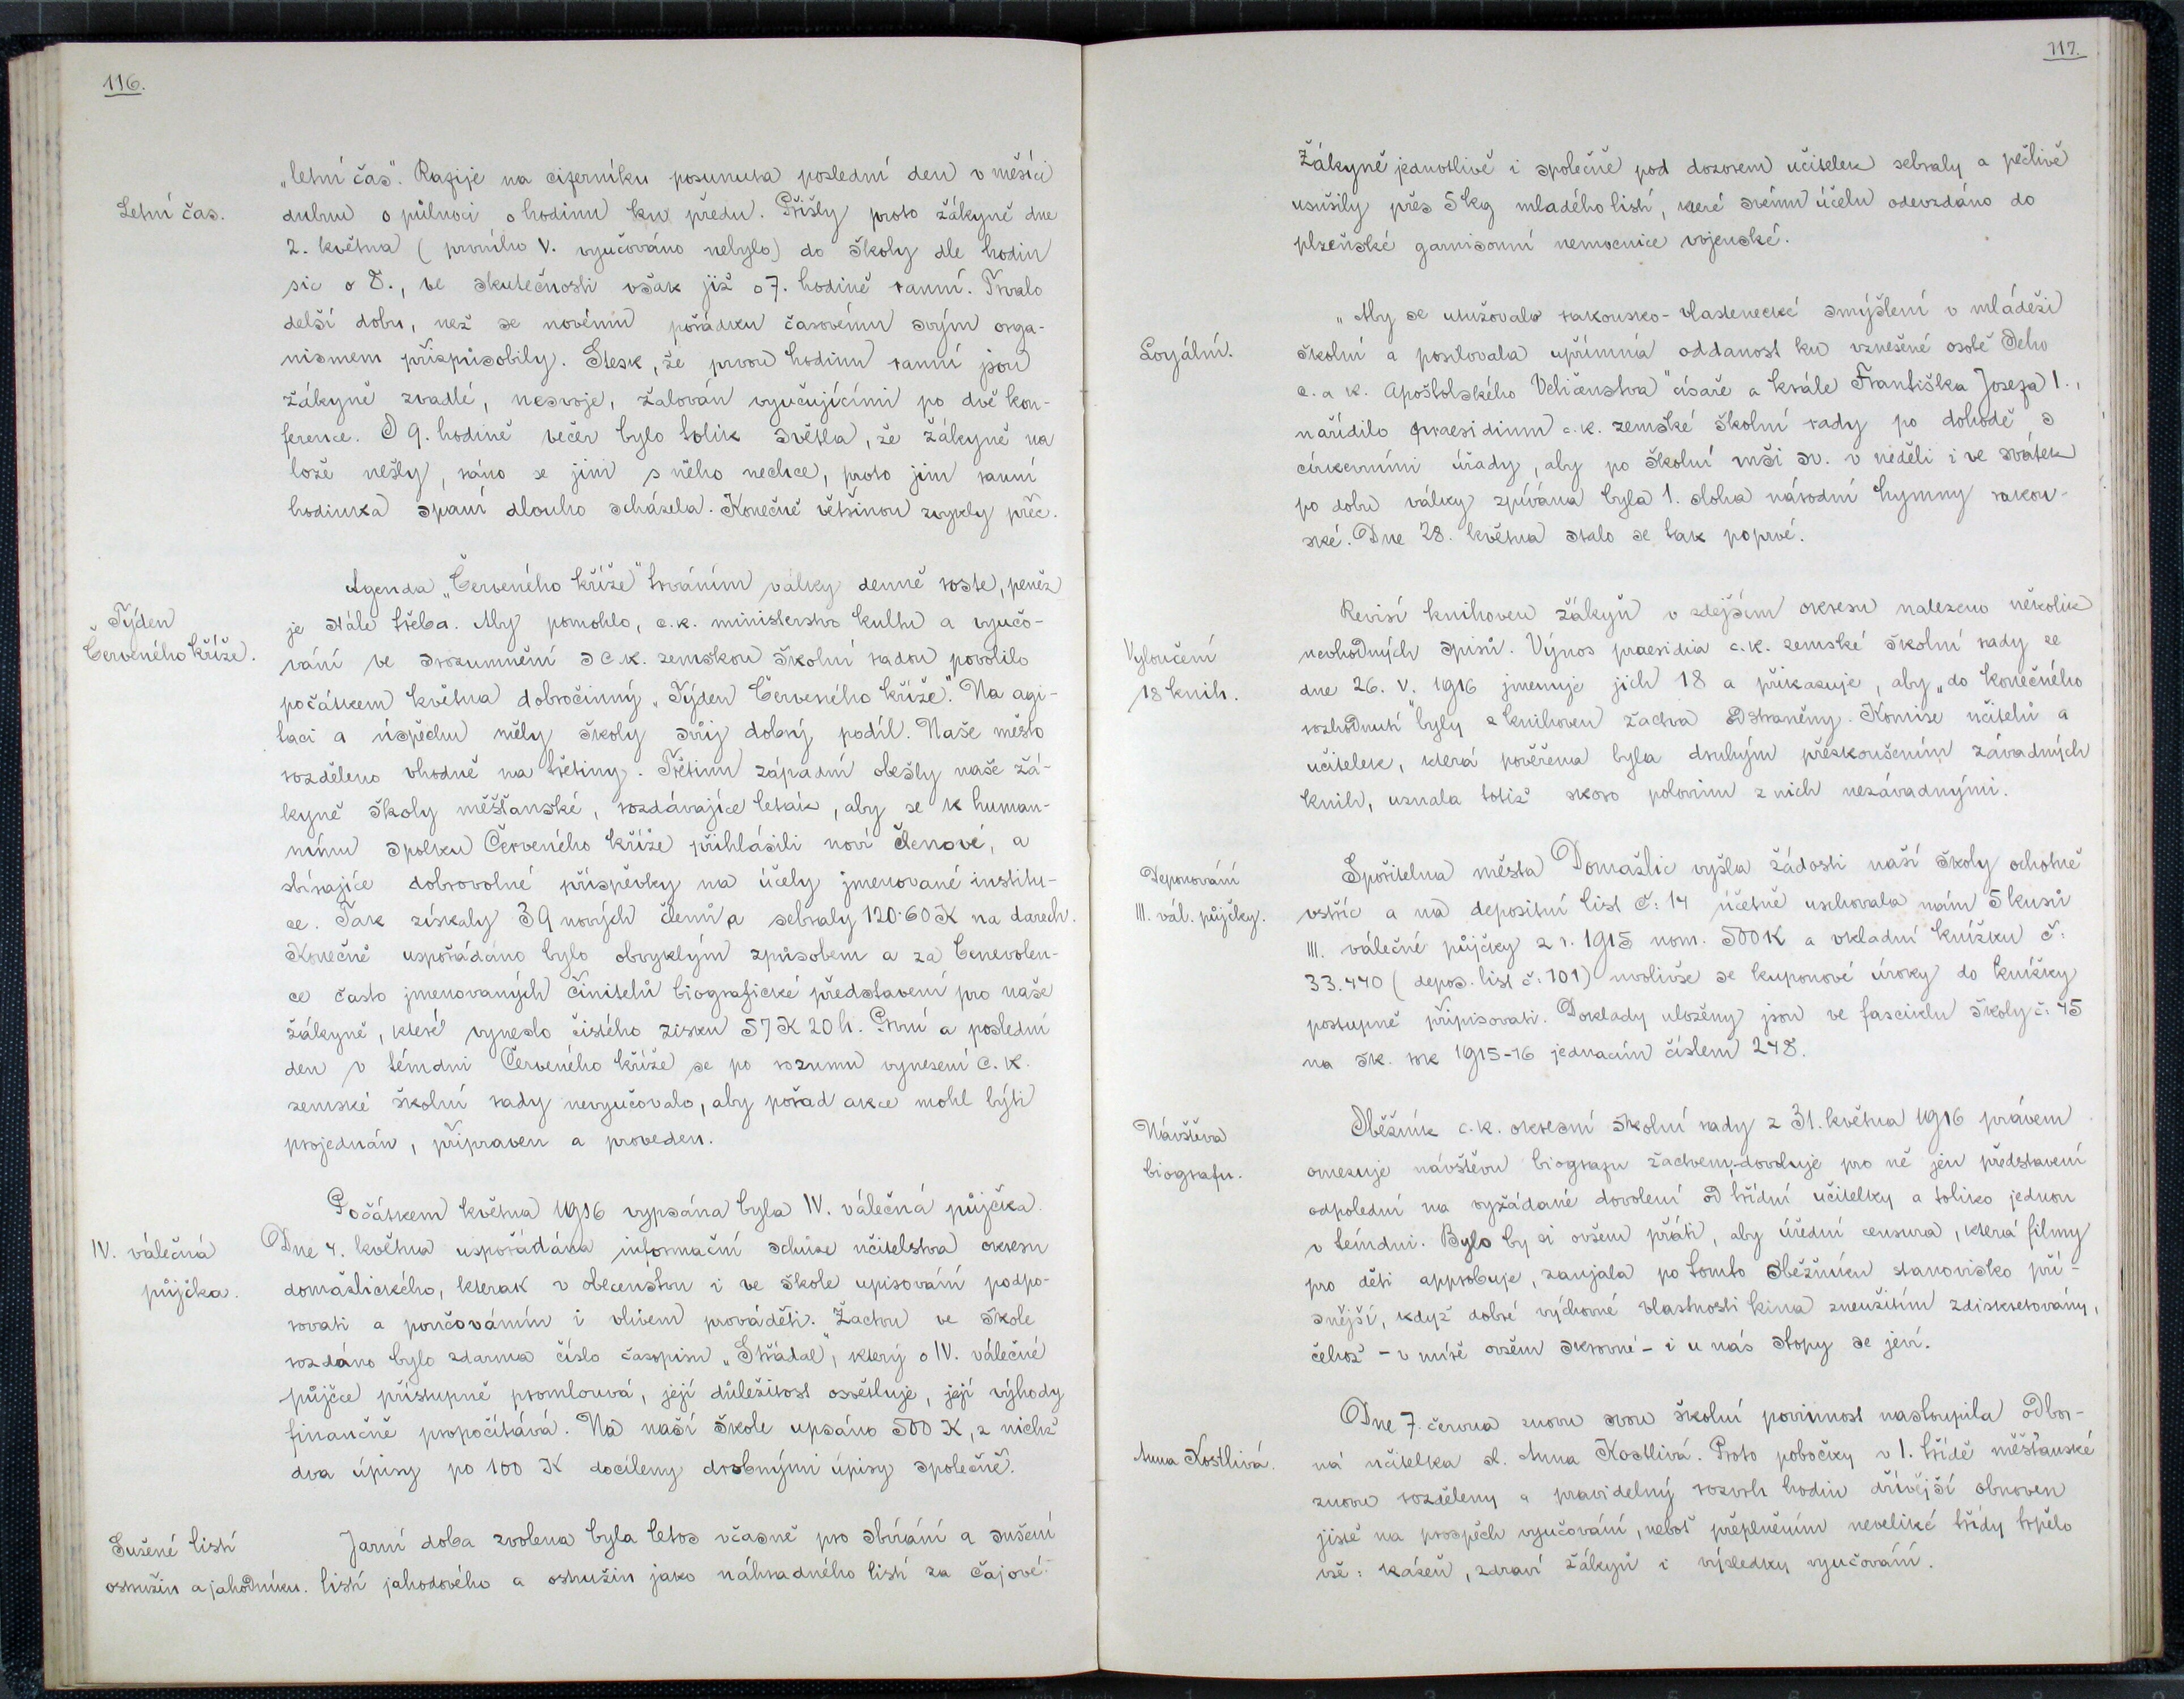 116.
„letní čas“. Rafije na ciferníku posunuta poslední den v měsíci
Letní čas.
dubnu o půlnoci o hodinu ku předu. Přišly proto žákyně dne
2. května (prvního V. vyučováno nebylo) do školy dle hodin
sic o 8., ve skutečnosti však již o 7. hodině ranní. Trvalo
delší dobu, než se novému pořádku časovému svým orga-
nismem přizpůsobily. Stesk, že prvou hodinu ranní jsou
žákyně zvadlé, nesvoje, žalován vyučujícími po dvě kon-
ference. O 9. hodině večer bylo tolik světla, že žákyně na
lože nešly, ráno se jim s něho nechce, proto jim ranní
hodinka spaní dlouho scházela. Konečně většinou zvykly přec.
Týden
Červeného kříže.
Agenda „Červeného kříže“ trváním války denně roste, peněz
je stále třeba. Aby pomohlo, c.k. ministerstvo kultu a vyučo-
vání ve srozumnění s c.k. zemskou školní radou povolilo
počátkem května dobročinný „Týden Červeného kříže.“ Na agi-
taci a úspěchu měly školy svůj dobrý podíl. Naše město
rozděleno vhodně na třetiny. Třetinu západní obešly naše žá-
kyně školy měšťanské, rozdávajíce leták, aby se k human-
nímu spolku Červeného kříže přihlásili noví členové, a
sbírajíce dobrovolné příspěvky na účely jmenované institu-
ce. Tak získaly 39 nových členů a sebraly 120·60 K na darech.
Konečně uspořádáno bylo obvyklým způsobem a za benevolen-
ce často jmenovaných činitelů biografické představení pro naše
žákyně, které vyneslo čistého zisku 57 K 20 h. První a poslední
den v témdni Červeného kříže se po rozumu vynesení c.k.
zemské školní rady nevyučovalo, aby pořad akce mohl býti
projednán, připraven a proveden.
IV. válečná
půjčka.
Počátkem května 1916 vypsána byla IV. válečná půjčka.
Dne 4. května uspořádána informační schůze učitelstva okresu
domažlického, kterak v obecenstvu i ve škole upisování podpo-
rovati a poučováním i vlivem prováděti. Žactvu ve škole
rozdáno bylo zdarma číslo časopisu „Střádal“, který o IV. válečné
půjčce přístupně promlouvá, její důležitost osvětluje, její výhody
finančně propočítává. Na naší škole upsáno 500 K, z nichž
dva úpisy po 100 K docíleny drobnými úpisy společně.
Sušené listí
ostružin a jahodníku.
Jarní doba zvolena byla letos včasně pro sbírání a sušení
listí jahodového a ostružin jako náhradného listí za čajové.
117.
Žákyně jednotlivě i společně pod dozorem učitelek sebraly a pečlivě
usušily přes 5 kg mladého listí, které svému účelu odevzdáno do
plzeňské garnisonní nemocnice vojenské.
Loyální.
„Aby se utužovalo rakousko-vlastenecké smýšlení v mládeži
školní a posilovala upřímná oddanost ku vznešené osobě Jeho
c. a k. Apoštolského Veličenstva“ císaře a krále Františka Josefa I.,
nařídilo praesidium c.k. zemské školní rady po dohodě s
církevními úřady, aby po školní mši sv. v neděli i ve svátek
po dobu války zpívána byla 1. sloha národní hymny rakou-
ské. Dne 28. května stalo se tak poprvé.
Vyloučení
18 knih.
Revisí knihoven žákyň v zdejším okresu nalezeno několik
nevhodných spisů. Výnos praesidia c.k. zemské školní rady ze
dne 26. V. 1916 jmenuje jich 18 a přikazuje, aby „do konečného
rozhodnutí“ byly z knihoven žactva odstraněny. Komise učitelů a
učitelek, která pověřena byla druhým přezkoušením závadných
knih, uznala totiž skoro polovinu z nich nezávadnými.
Deponování
III. vál. půjčky.
Spořitelna města Domažlic vyšla žádosti naší školy ochotně
vstříc a na depositní list č: 14 účetně uschovala nám 5 kusů
III. válečné půjčky z r. 1915 nom. 500 K a vkladní knížku č:
33.440 (depos. list č: 101) uvolivše se kuponové úroky do knížky
postupně připisovati. Doklady uloženy jsou ve fasciklu školy č: 45
na šk. rok 1915-16 jednacím číslem 248.
Návštěva
biografu.
Oběžník c.k. okresní školní rady z 31. května 1916 právem
omezuje návštěvu biografu žactvem: dovoluje pro ně jen představení
odpolední na vyžádané dovolení od třídní učitelky a toliko jednou
v témdni. Bylo by si ovšem přáti, aby úřední censura, která filmy
pro děti approbuje, zaujala po tomto oběžníku stanovisko pří-
snější, když dobré výchovné vlastnosti kina zneužitím zdiskretovány,
čehož - v míře ovšem skrovné - i u nás stopy se jeví.
Anna Kostlivá.
Dne 7. června znovu svou školní povinnost nastoupila odbor-
ná učitelka sl. Anna Kostlivá. Proto pobočky v I. třídě měšťanské
znovu rozděleny a pravidelný rozvrh hodin dřívější obnoven
jistě na prospěch vyučování, neboť přeplněním neveliké třídy trpělo
vše: kázeň, zdraví žákyň i výsledky vyučování.